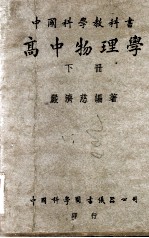 中國科學教科書
高中物理學
下冊
嚴濟慈編著
中國科學圖書儀器公司
譯行